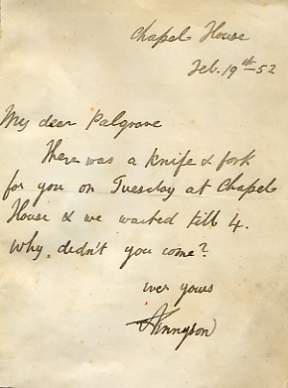 Chapel House
Feb. 19th - 52
My dear Palgrave
There was a knife & fork
for you on Tuesday at Chapel
House & we waited till 4.
Why, didn't you come?
ever yours
ATennyson